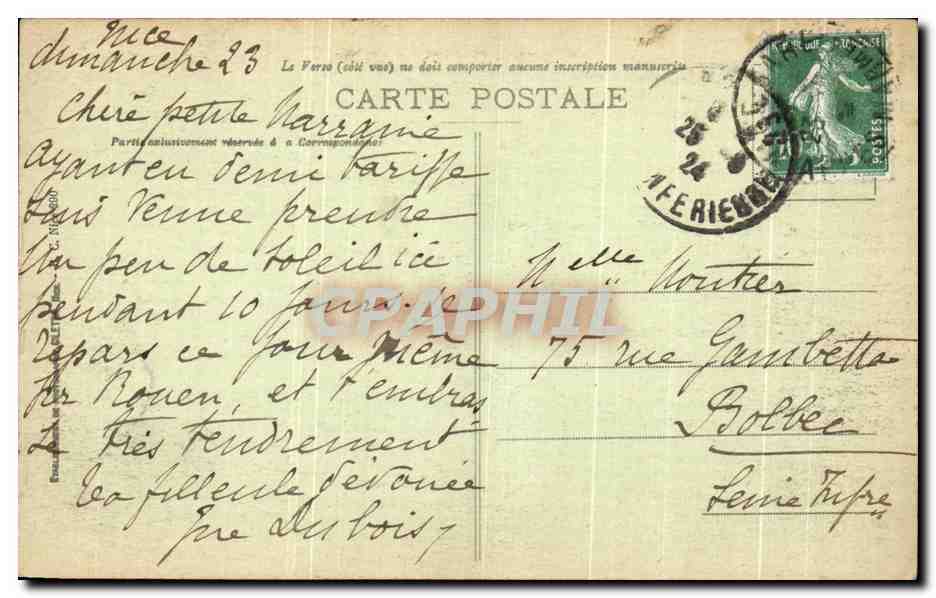 Nice
dimanche 23
Le Verso (côté vue) ne doit comporter aucune inscription manuscrite
CARTE POSTALE
Partie exclusivement réservée à la Correspondance
Chère petite Marraine
Ayant eu demi tariffe
suis venue prendre
un peu de soleil ici
pendant 10 jours. Je
repars ce jour même
pr Rouen, et t'embras
se très tendrement
ta filleule dévouée
Yne Dubois
Melle Moutier
75 rue Gambetta
Bolbec
Seine Infre
REPUBLIQUE FRANÇAISE
POSTES
25
24
INFERIEURE
CPAPHIL